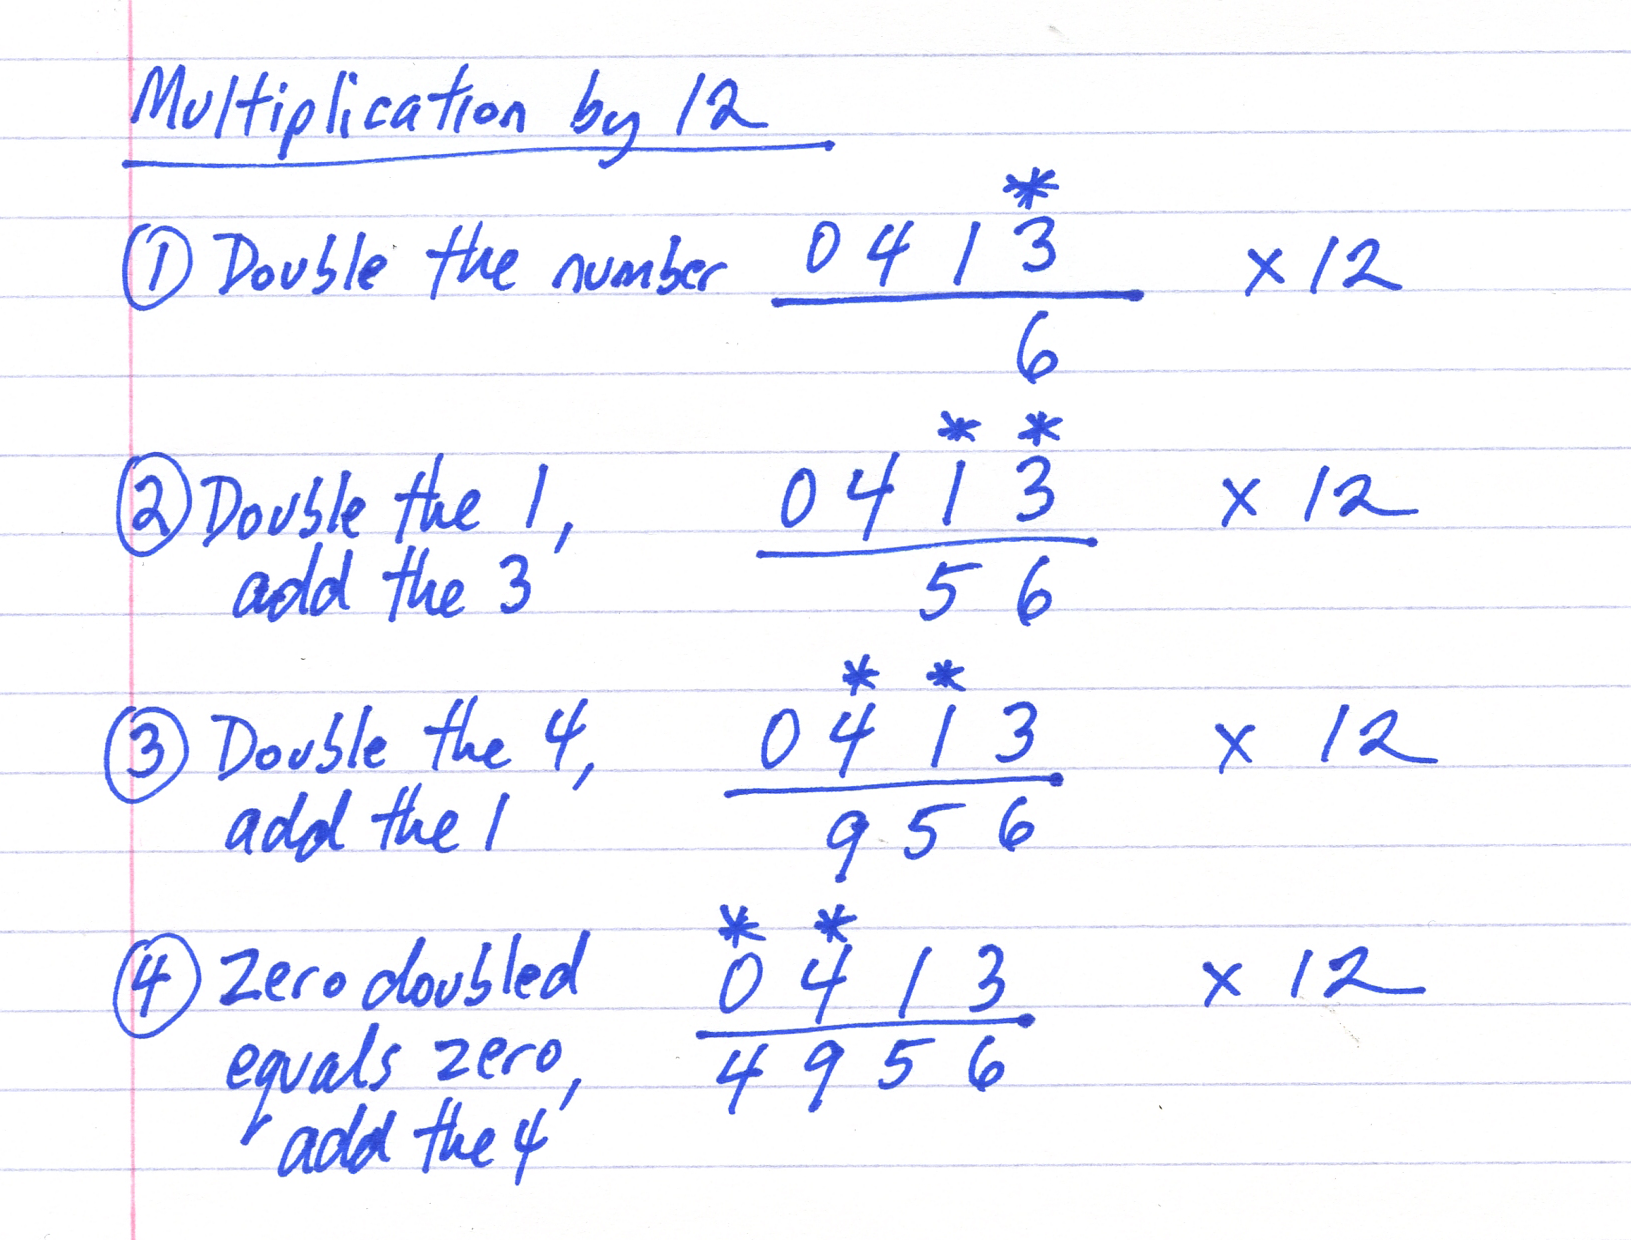 Multiplication by 12
*
① Double the number 0 4 1 3 x 12
6
* *
② Double the 1, 0 4 1 3 x 12
add the 3 5 6
* *
③ Double the 4, 0 4 1 3 x 12
add the 1 9 5 6
* *
④ Zero doubled 0 4 1 3 x 12
equals zero, 4 9 5 6
add the 4